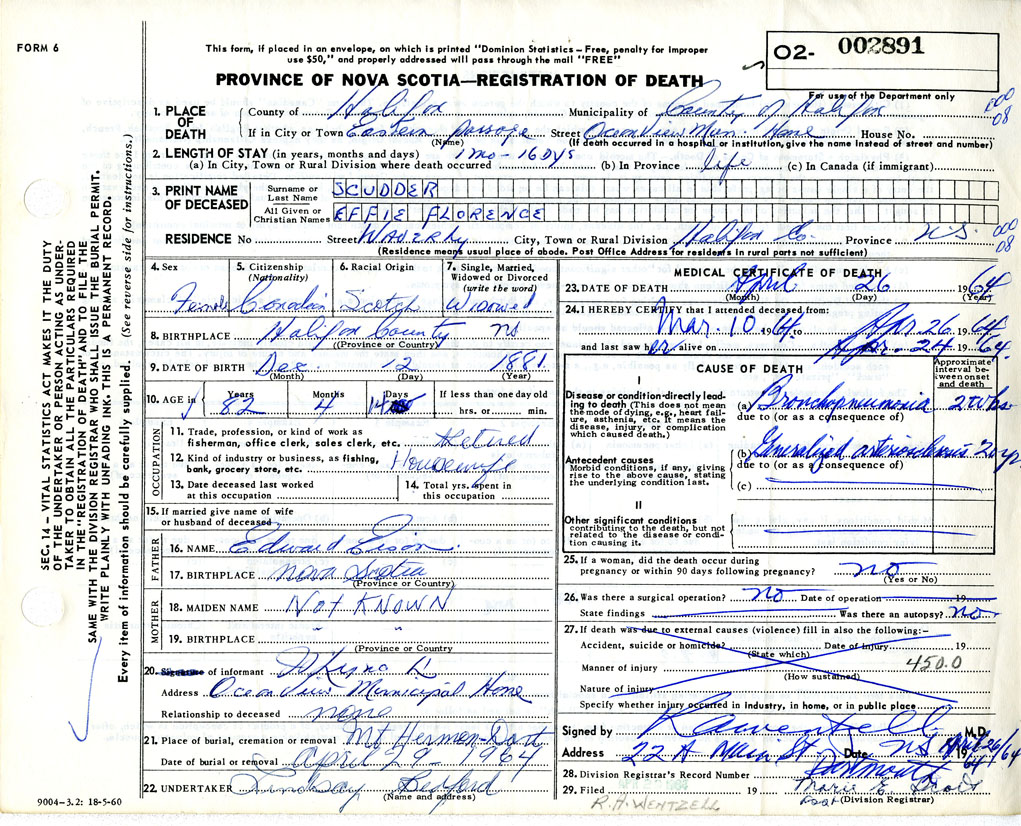 FORM 6
This form, if placed in an envelope, on which is printed "Dominion Statistics – Free, penalty for improper
use $50," and properly addressed will pass through the mail "FREE"
O2- 002891
For use of the Department only
PROVINCE OF NOVA SCOTIA—REGISTRATION OF DEATH
1. PLACE OF DEATH
County of Halifax Municipality of County of Halifax 000 08
If in City or Town Eastern Passage Street Ocean View Mun. Home House No.
(Name) (If death occurred in a hospital or institution, give the name instead of street and number)
2. LENGTH OF STAY (in years, months and days) 1 mo - 16 Dys
(a) In City, Town or Rural Division where death occurred (b) In Province life (c) In Canada (if immigrant)
3. PRINT NAME OF DECEASED
Surname or Last Name SCUDDER
All Given or Christian Names EFFIE FLORENCE
RESIDENCE No. Street Waverly City, Town or Rural Division Halifax Co. Province N.S. 000 08
(Residence means usual place of abode. Post Office Address for residents in rural parts not sufficient)
4. Sex
Female
5. Citizenship (Nationality)
Canadian
6. Racial Origin
Scotch
7. Single, Married, Widowed or Divorced (write the word)
Widowed
8. BIRTHPLACE Halifax County NS
((Province or Country)
9. DATE OF BIRTH Dec 12 1881
(Month) (Day) (Year)
10. AGE in Years 82 Months 4 Days 14 If less than one day old hrs. or min.
OCCUPATION
11. Trade, profession, or kind of work as fisherman, office clerk, sales clerk, etc. Retired
12. Kind of industry or business, as fishing, bank, grocery store, etc. Housewife
13. Date deceased last worked at this occupation
14. Total yrs. spent in this occupation
15. If married give name of wife or husband of deceased
FATHER
16. NAME Edward
17. BIRTHPLACE Nova Scotia
(Province or Country)
MOTHER
18. MAIDEN NAME NOT KNOWN
19. BIRTHPLACE " "
(Province or Country)
20. Signature of informant
Address Ocean View Municipal Home
Relationship to deceased none
21. Place of burial, cremation or removal Mt Hermon - Dart
Date of burial or removal April 29 - 1964
22. UNDERTAKER Lindsay Bedford
(Name and address)
9004–3.2: 18-5-60
MEDICAL CERTIFICATE OF DEATH
23. DATE OF DEATH April 26 1964
(Month) (Day) (Year)
24. I HEREBY CERTIFY that I attended deceased from:
Mar. 10 1964 Apr 26 1964
and last saw her alive on Apr. 24 1964
CAUSE OF DEATH
Approximate interval between onset and death
I
Disease or condition directly leading to death (This does not mean the mode of dying, e.g., heart failure, asthenia, etc. It means the disease, injury, or complication which caused death.)
(a) Bronchopneumonia 2 wks
due to (or as a consequence of)
Antecedent causes
Morbid conditions, if any, giving rise to the above cause, stating the underlying condition last.
(b) Generalized arteriosclerosis 20 yrs
due to (or as a consequence of)
(c)
II
Other significant conditions
contributing to the death, but not related to the disease or condition causing it.
25. If a woman, did the death occur during pregnancy or within 90 days following pregnancy? no
(Yes or No)
26. Was there a surgical operation? no Date of operation 19
State findings Was there an autopsy? no
27. If death was due to external causes (violence) fill in also the following:–
Accident, suicide or homicide? Date of injury 19
(State which)
Manner of injury 450.0
(How sustained)
Nature of injury
Specify whether injury occurred in industry, in home, or in public place
Signed by R A Wentzell M.D.
Address 22 A Main St. Dartmouth NS Date April 26/64 19
28. Division Registrar's Record Number
29. Filed 19 64 Marie E.
(Division Registrar)
R.A. WENTZELL
SEC. 14 – VITAL STATISTICS ACT MAKES IT THE DUTY
OF THE UNDERTAKER OR PERSON ACTING AS UNDER-
TAKER TO OBTAIN ALL THE PARTICULARS REQUIRED
IN THE "REGISTRATION OF DEATH" AND TO FILE THE
SAME WITH THE DIVISION REGISTRAR WHO SHALL ISSUE THE BURIAL PERMIT.
WRITE PLAINLY WITH UNFADING INK. THIS IS A PERMANENT RECORD.
Every item of information should be carefully supplied. (See reverse side for instructions.)